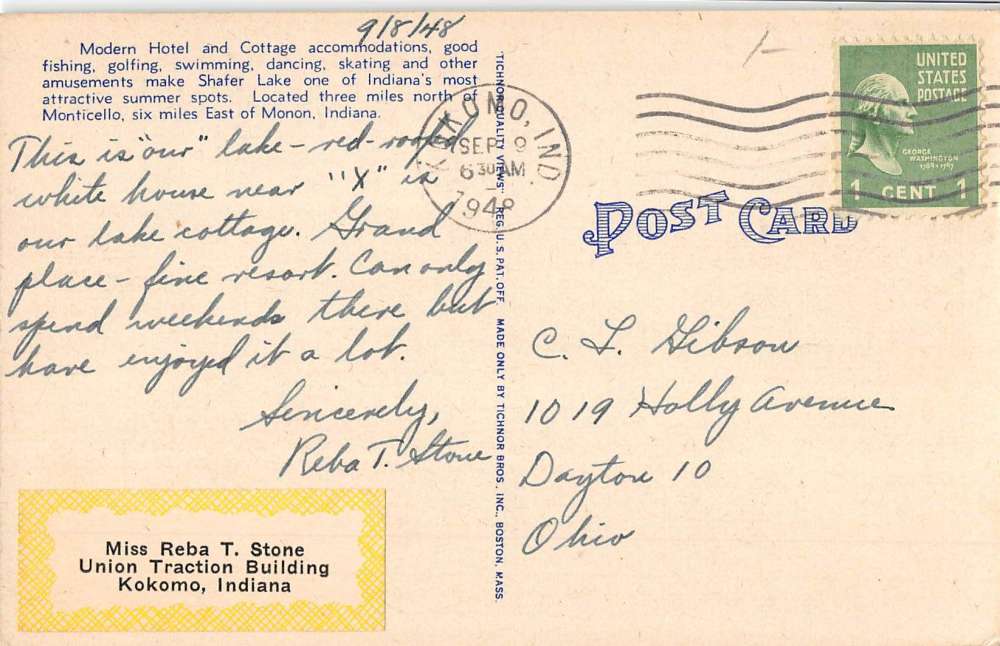 9/8/48
Modern Hotel and Cottage accommodations, good
fishing, golfing, swimming, dancing, skating and other
amusements make Shafer Lake one of Indiana's most
attractive summer spots. Located three miles north of
Monticello, six miles East of Monon, Indiana.
This is "our" lake - red-roof
white house near "X" is
our lake cottage. Grand
place - fine resort. Can only
spend weekends there but
have enjoyed it a lot.
Sincerely,
Reba T. Stone
Miss Reba T. Stone
Union Traction Building
Kokomo, Indiana
"TICHNOR QUALITY VIEWS" REG. U. S. PAT. OFF. MADE ONLY BY TICHNOR BROS., INC., BOSTON, MASS.
KOKOMO, IND.
SEP 9
630 AM
1948
UNITED
STATES
POSTAGE
GEORGE
WASHINGTON
1789-1797
1 CENT 1
POST CARD
C. L. Gibson
1019 Holly Avenue
Dayton 10
Ohio